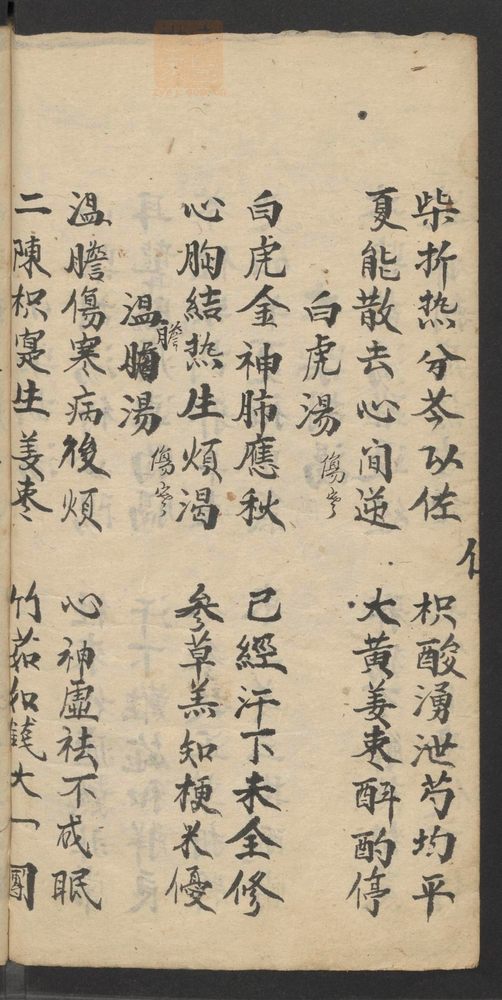 柴折热分芩以佐 枳酸湧泄芍均平
夏能散去心间逆 大黄姜枣酙酌停
白虎湯 傷寒
白虎金神肺應秋 已經汗下未全修
心胸結热生煩渴 參草羔知梗米優
温膽湯 傷寒
温膽傷寒病後煩 心神虚祛不成眠
二陳枳寔生姜枣 竹茹如錢大一團